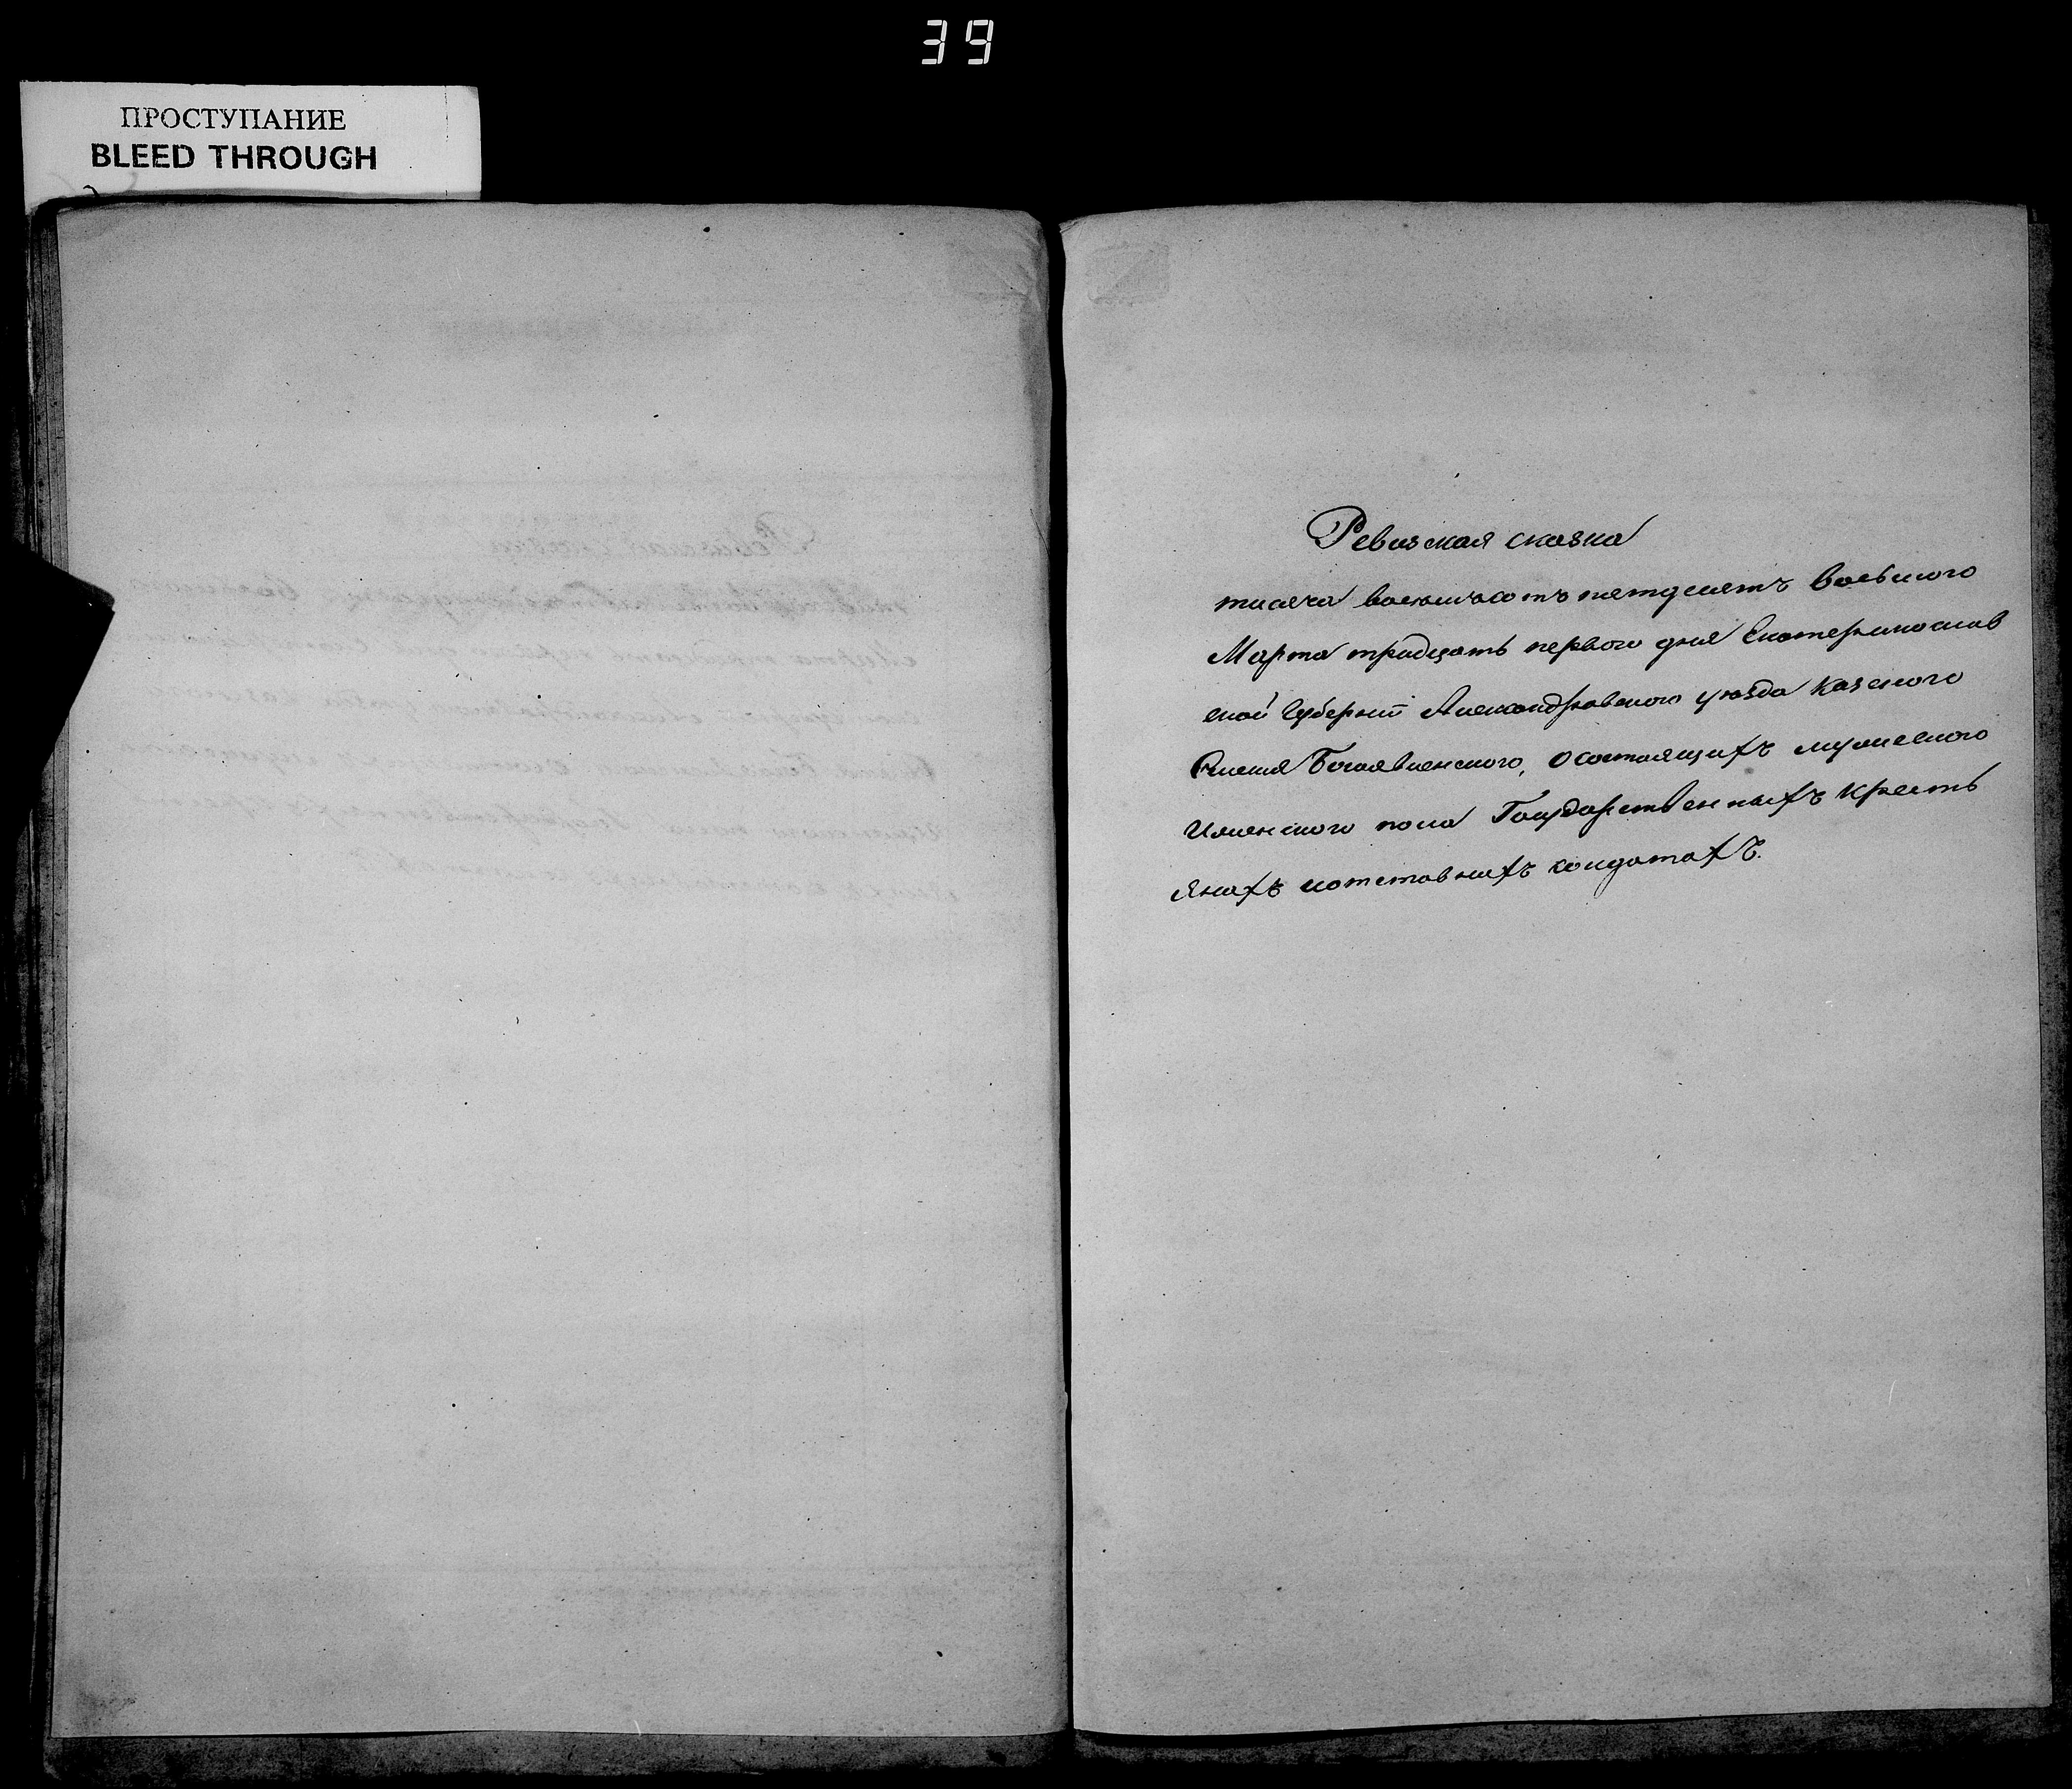 39
ПРОСТУПАНИЕ
BLEED THROUGH
Ревизская сказка
тисяча восемьсотъ пятдесятъ восьмого
Марта тридцать первого дня Екатеринослав
ской Губерніи Александровского уѣзда казеного
Селения Богоявленского, осостоящихъ мужеского
Иженского пола Государственныхъ Кресть
янахъ иотставныхъ солдатахъ.